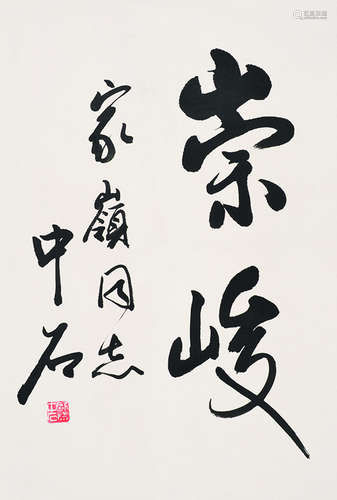 崇峻
家嶺同志
中石